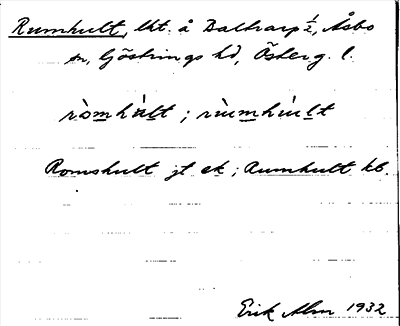 Rumhult, lht. å Daltrarp ½, Åsbo
sn, Göstrings hd, Österg. l.
ròmhált ; rùumhúult
Romshult jt ek ; Rumhult kb.
Erik Alm 1932